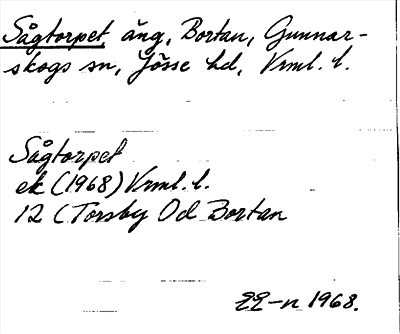 Sågtorpet, äng, Bortan, Gunnar-
skogs sn, Jösse hd, Vrml. l.
Sågtorpet
ek (1968) Vrml. l.
12 (Torsby Od Bortan
1968.